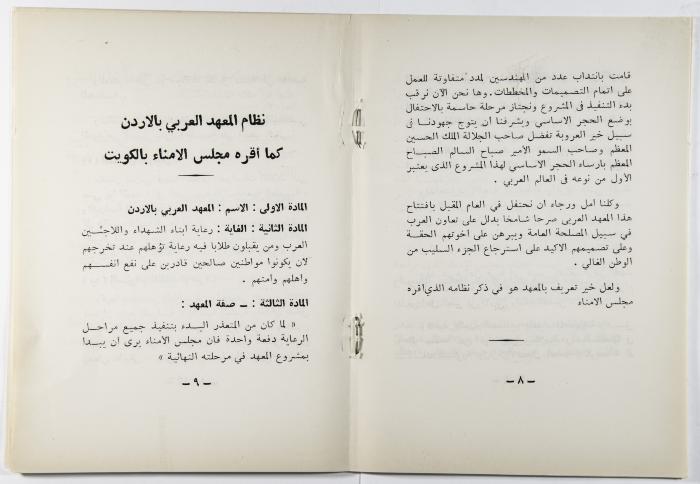 قامت بانتداب عدد من المهندسين لمدد متفاوتة للعمل
على اتمام التصميمات والمخططات. وها نحن الآن نرقب
بدء التنفيذ فى المشروع ونجتاز مرحلة حاسمة بالاحتفال
بوضع الحجر الاساسي ويشرفنا ان يتوج جهودنا فى
سبيل خير العروبة تفضل صاحب الجلالة الملك الحسين
المعظم وصاحب السمو الأمير صباح السالم الصباح
المعظم بارساء الحجر الاساسي لهذا المشروع الذى يعتبر
الأول من نوعه فى العالم العربي .
وكلنا امل ورجاء ان نحتفل في العام المقبل بافتتاح
هذا المعهد العربى صرحا شامخا يدلل على تعاون العرب
في سبيل المصلحة العامة ويبرهن على اخوتهم الحقة
وعلى تصميمهم الاكيد على استرجاع الجزء السليب من
الوطن الغالي .
ولعل خير تعريف بالمعهد هو في ذكر نظامه الذي اقره
مجلس الامناء
ـ ٨ ـ
نظام المعهد العربي بالاردن
كما أقره مجلس الامناء بالكويت
المادة الاولى : الاسم : المعهد العربي بالاردن
المادة الثانية : الغاية : رعاية ابناء الشهداء واللاجئين
العرب ومن يقبلون طلابا فيه رعاية تؤهلهم عند تخرجهم
لان يكونوا مواطنين صالحين قادرين على نفع انفسهم
واهلهم وامتهم .
المادة الثالثة : ـ صفة المعهد :
« لما كان من المتعذر البدء بتنفيذ جميع مراحل
الرعاية دفعة واحدة فان مجلس الامناء يرى ان يبدا
بمشروع المعهد في مرحلته النهائية »
ـ ٩ ـ